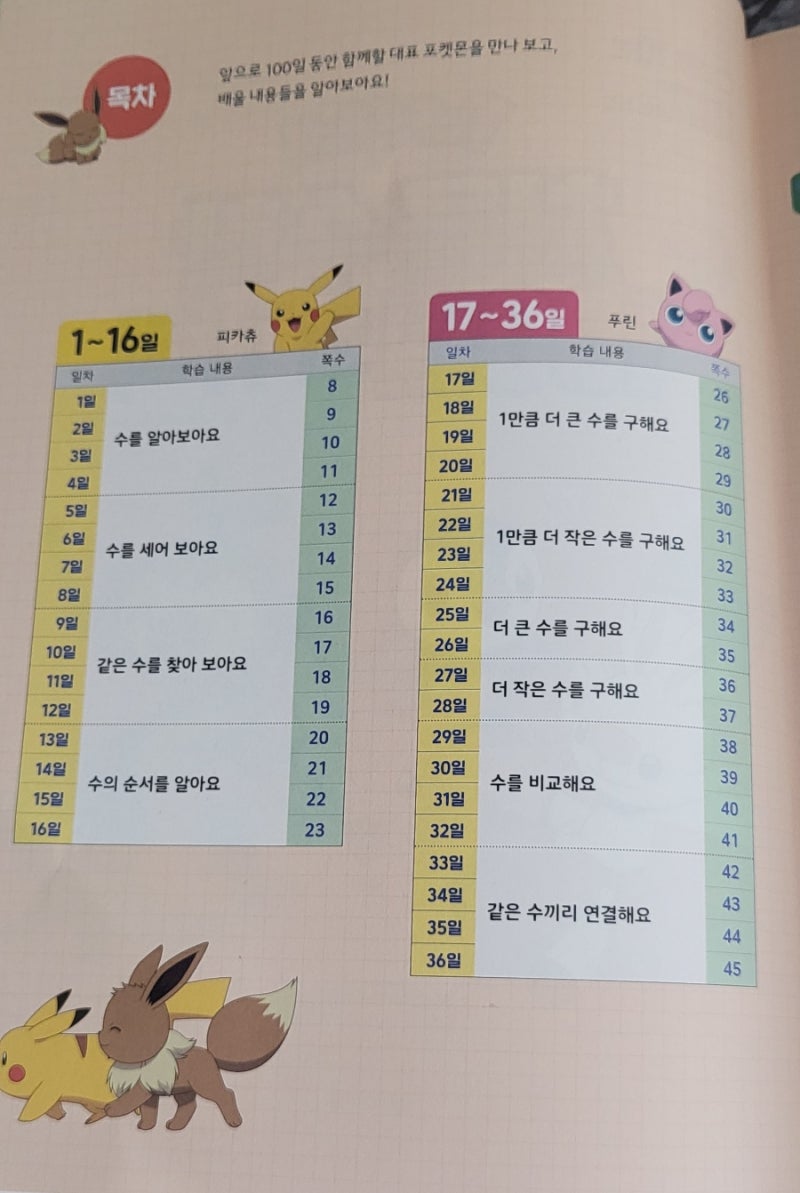 목차
앞으로 100일 동안 함께할 대표 포켓몬을 만나 보고,
배울 내용들을 알아보아요!
1~16일
피카츄
일차 학습 내용 쪽수
1일 8
2일 9
수를 알아보아요
3일 10
4일 11
5일 12
6일 13
수를 세어 보아요
7일 14
8일 15
9일 16
10일 17
같은 수를 찾아 보아요
11일 18
12일 19
13일 20
14일 21
수의 순서를 알아요
15일 22
16일 23
17~36일
푸린
일차 학습 내용 쪽수
17일 26
18일 27
1만큼 더 큰 수를 구해요
19일 28
20일 29
21일 30
22일 31
1만큼 더 작은 수를 구해요
23일 32
24일 33
25일 34
더 큰 수를 구해요
26일 35
27일 36
더 작은 수를 구해요
28일 37
29일 38
30일 39
수를 비교해요
31일 40
32일 41
33일 42
34일 43
같은 수끼리 연결해요
35일 44
36일 45